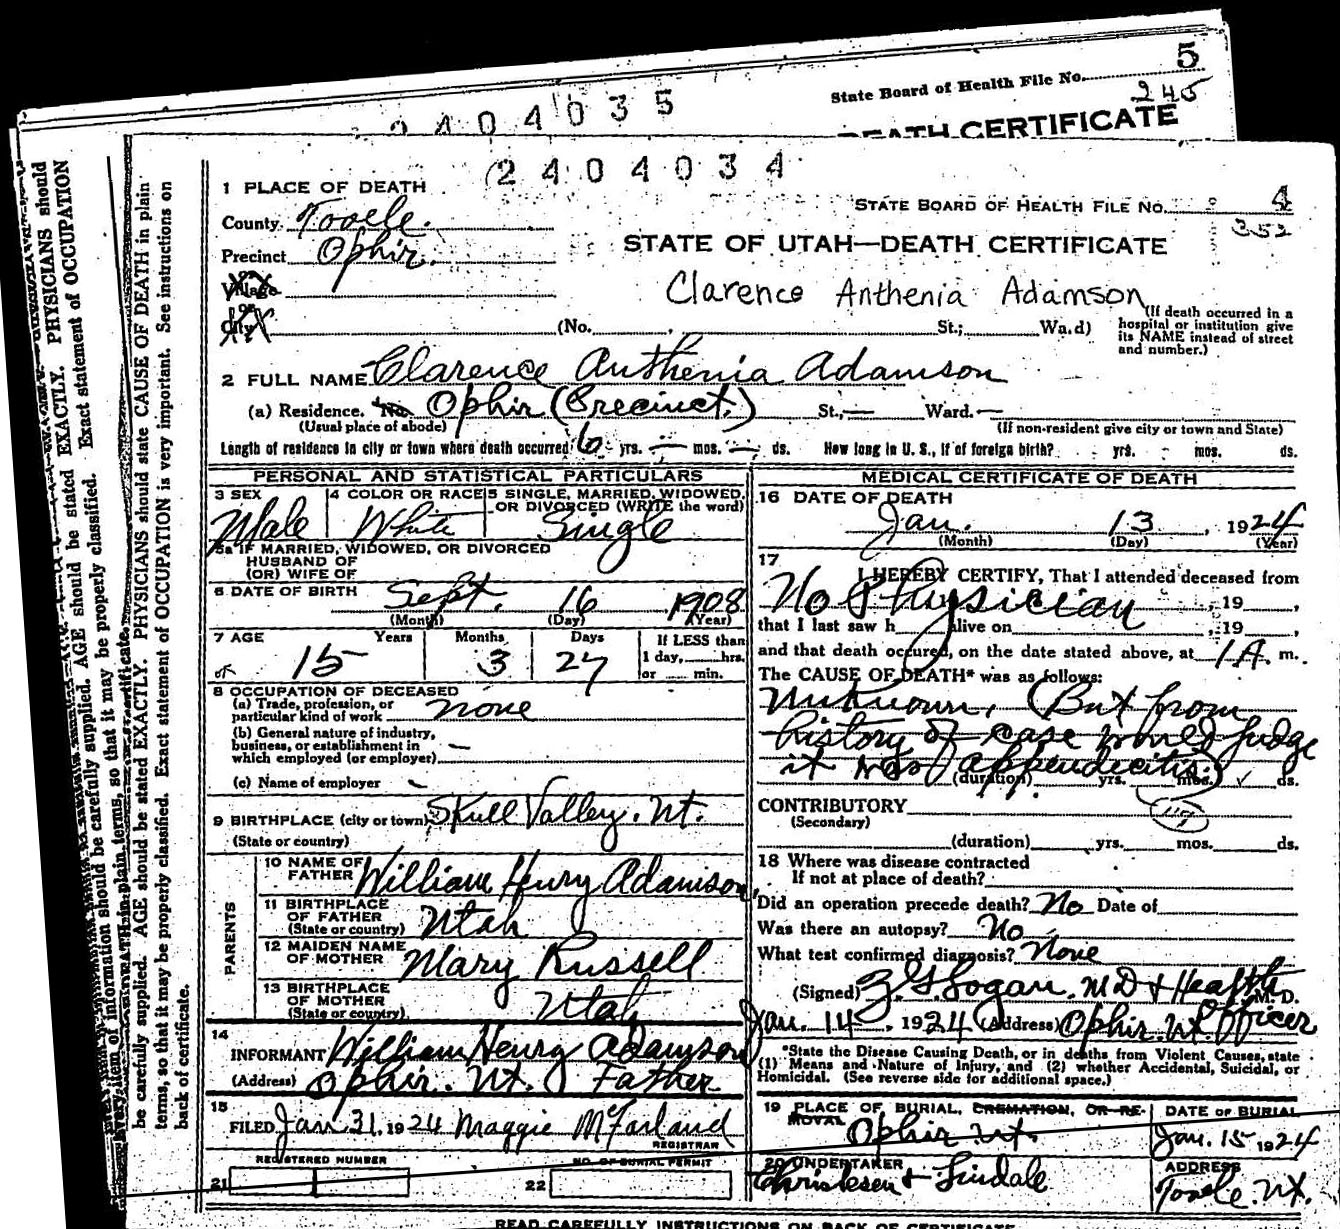 5
State Board of Health File No.
245
2404035
DEATH CERTIFICATE
2404034
1 PLACE OF DEATH
4
STATE BOARD OF HEALTH FILE No.
352
County Tooele.
STATE OF UTAH—DEATH CERTIFICATE
Precinct Ophir.
Village
Clarence Anthenia Adamson
or
City (No. St.; Wa.d) (If death occurred in a
hospital or institution give
its NAME instead of street
and number.)
2 FULL NAME Clarence Anthenia Adamson
(a) Residence. No. Ophir (Precinct.) St., — Ward. —
(Usual place of abode) (If non-resident give city or town and State)
Length of residence in city or town where death occurred 6 yrs. — mos. — ds. How long in U. S., if of foreign birth? yrs. mos. ds.
PERSONAL AND STATISTICAL PARTICULARS
3 SEX 4 COLOR OR RACE 5 SINGLE, MARRIED, WIDOWED,
OR DIVORCED (WRITE the word)
Male White Single
5a IF MARRIED, WIDOWED, OR DIVORCED
HUSBAND OF
(OR) WIFE OF
6 DATE OF BIRTH Sept. 16 1908
(Month) (Day) (Year)
7 AGE Years Months Days If LESS than
15 3 27 1 day, hrs.
or min.
8 OCCUPATION OF DECEASED
(a) Trade, profession, or
particular kind of work none
(b) General nature of industry,
business, or establishment in
which employed (or employer) —
(c) Name of employer -
9 BIRTHPLACE (city or town) Skull Valley. Ut.
(State or country)
PARENTS
10 NAME OF
FATHER William Henry Adamson,
11 BIRTHPLACE
OF FATHER
(State or country) Utah
12 MAIDEN NAME
OF MOTHER Mary Russell
13 BIRTHPLACE
OF MOTHER
(State or country) Utah
14
INFORMANT William Henry Adamson
(Address) Ophir. Ut. Father
15
FILED Jan 31, 1924 Maggie McFarland
REGISTRAR
REGISTERED NUMBER NO. OF BURIAL PERMIT
21 22
MEDICAL CERTIFICATE OF DEATH
16 DATE OF DEATH
Jan. 13, 1924
(Month) (Day) (Year)
17
I HEREBY CERTIFY, That I attended deceased from
No Physician , 19 ,
that I last saw h alive on , 19 ,
and that death occured, on the date stated above, at 1 A. m.
The CAUSE OF DEATH* was as follows:
Unknown, (But from
history of case would judge
it was appendicitis.)
(duration) yrs. mos. ds.
CONTRIBUTORY
(Secondary) 119
(duration) yrs. mos. ds.
18 Where was disease contracted
If not at place of death?
Did an operation precede death? No Date of
Was there an autopsy? No
What test confirmed diagnosis? None
(Signed) Logan. MD & Health M. D.
Jan. 14, 1924 (Address) Ophir. Ut. Officer
*State the Disease Causing Death, or in deaths from Violent Causes, state
(1) Means and Nature of Injury, and (2) whether Accidental, Suicidal, or
Homicidal. (See reverse side for additional space.)
19 PLACE OF BURIAL, CREMATION, OR RE-
MOVAL
DATE OF BURIAL
Ophir Ut. Jan. 15 1924
20 UNDERTAKER ADDRESS
Christesen & Lindale Tooele. Ut.
READ CAREFULLY INSTRUCTIONS ON BACK OF CERTIFICATE
be carefully supplied. AGE should be stated EXACTLY. PHYSICIANS should state CAUSE OF DEATH in plain
terms, so that it may be properly classified. Exact statement of OCCUPATION is very important. See instructions on
back of certificate.